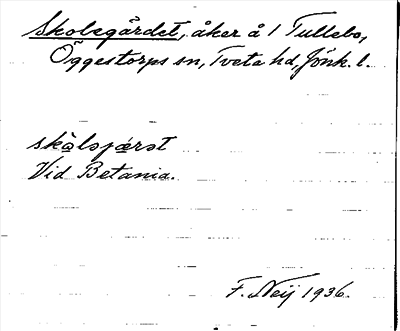 Skolegärdet, åker å 1 Tullebo,
Öggestorps sn, Tveta hd, Jönk. l.
skòlәjæ̀rәt
Vid Betania.
F. Neij 1936.